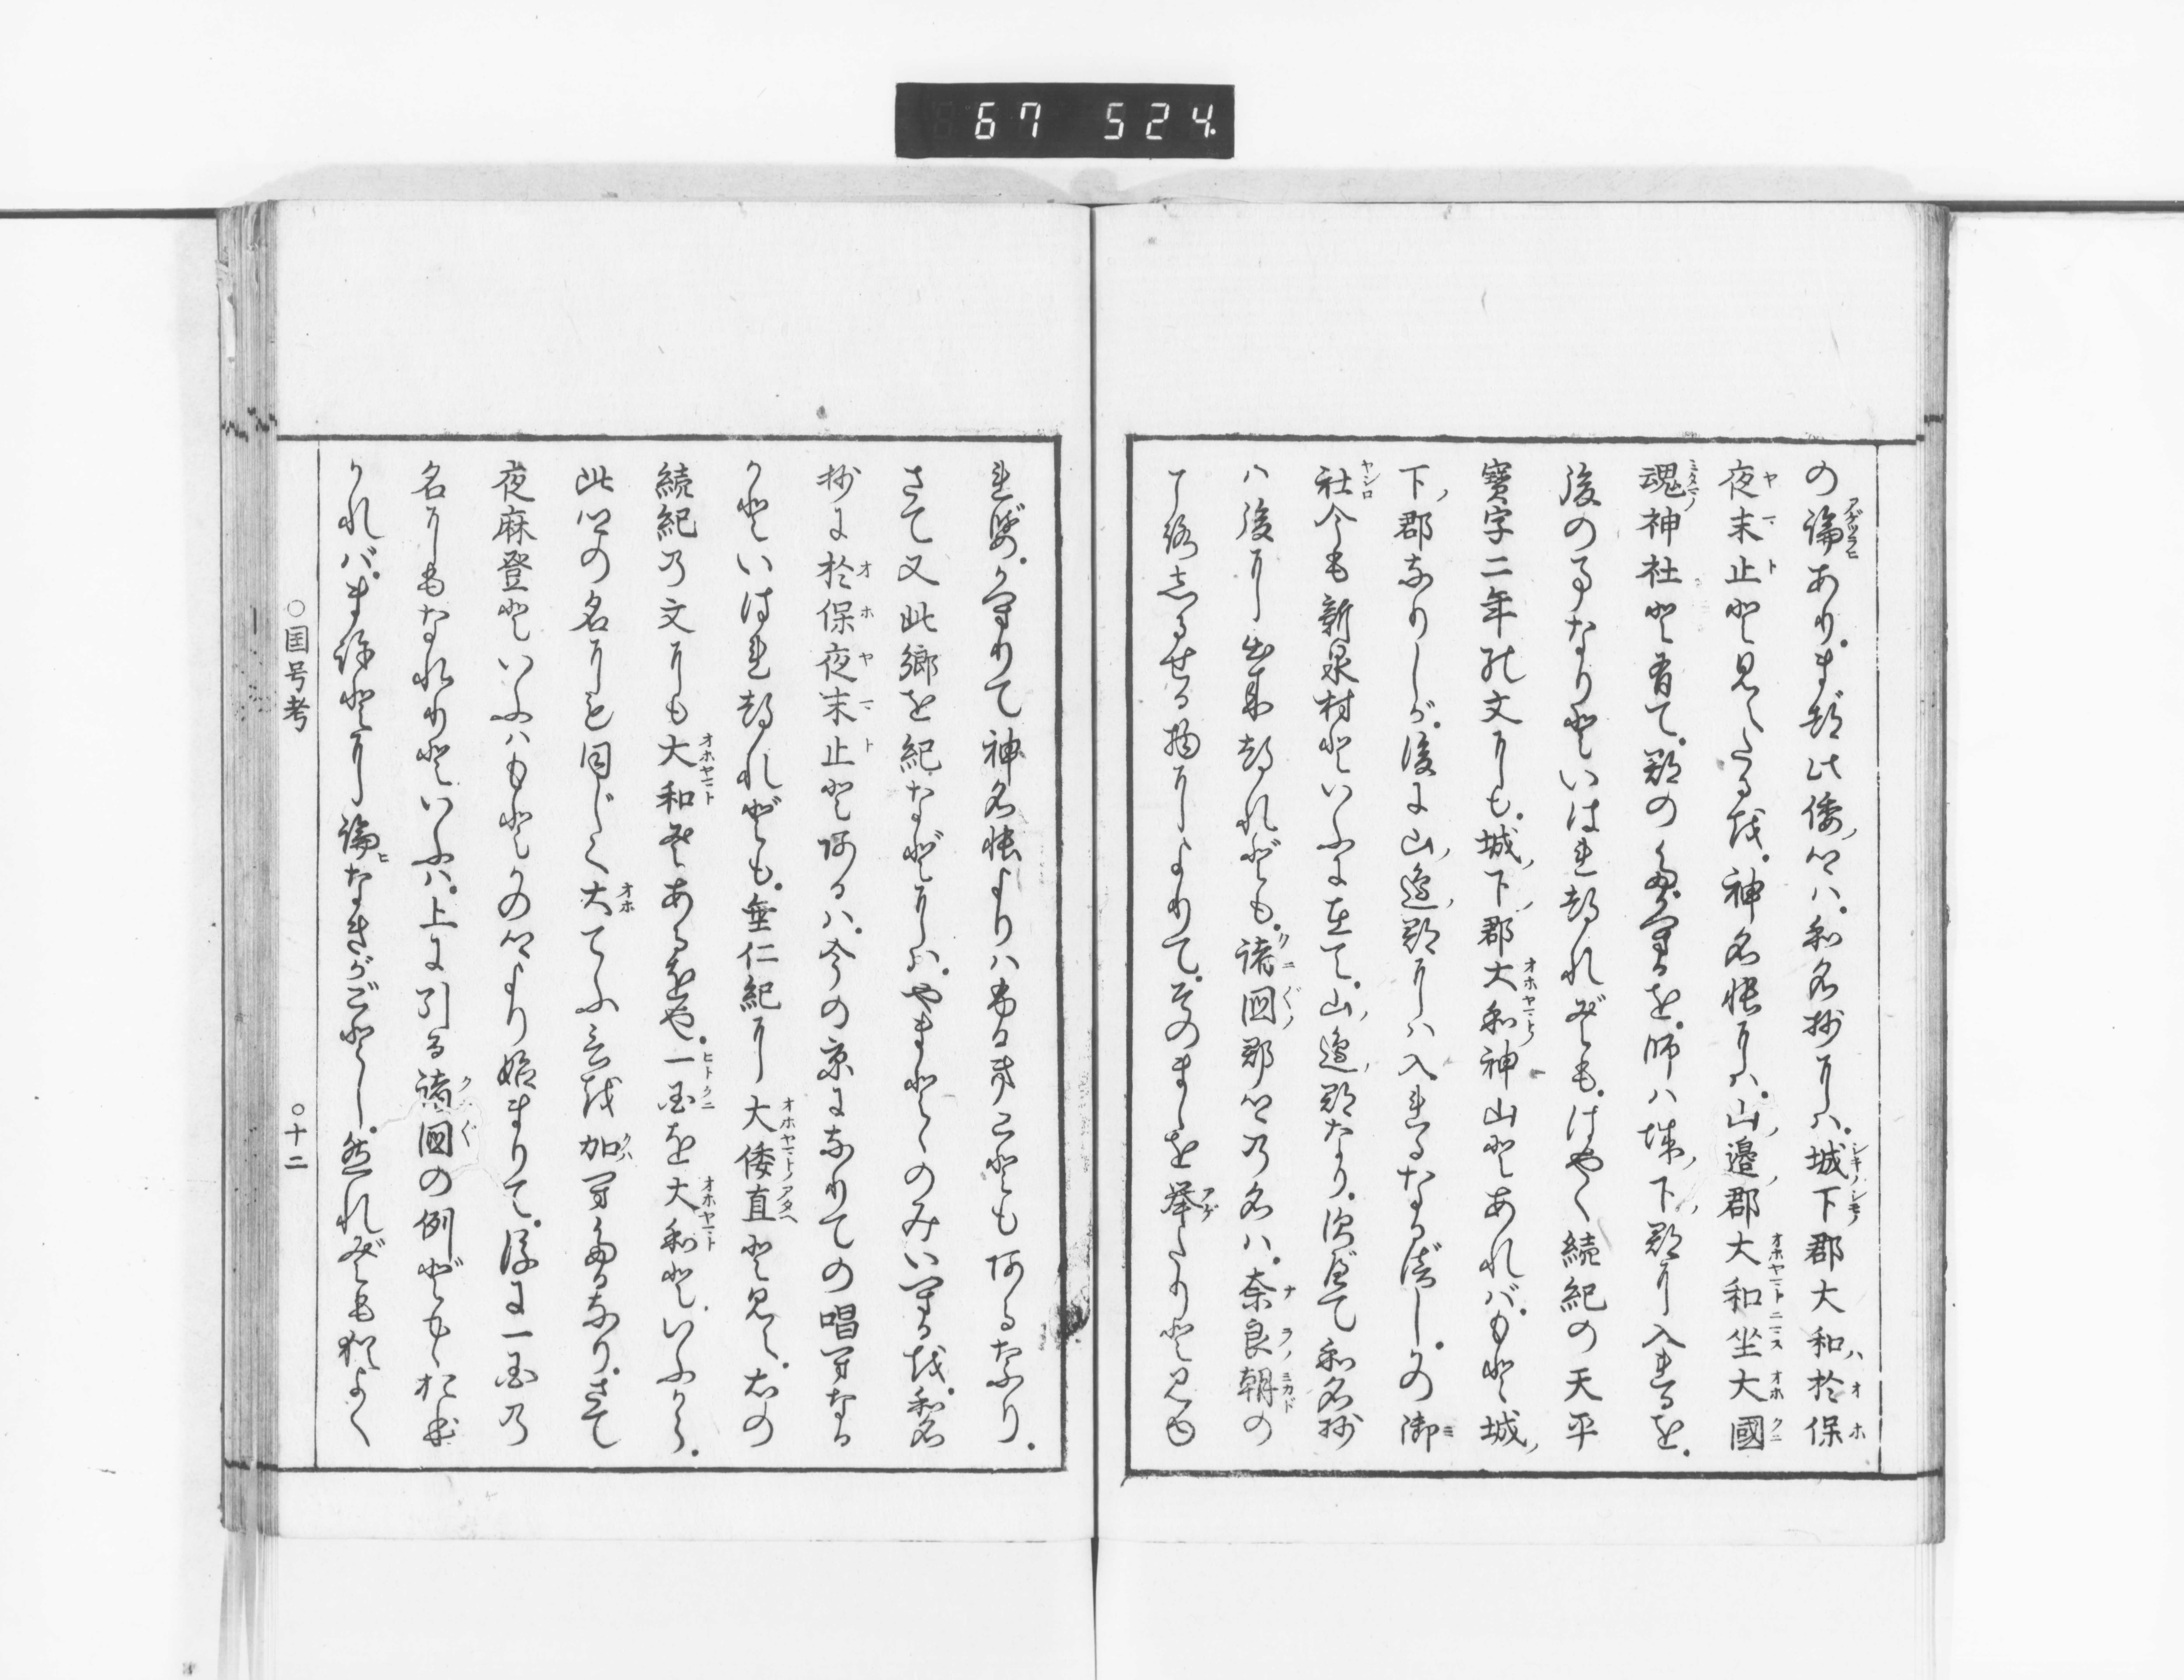 67 524
の論あり。まづ此倭ノ郷ハ。和名抄にハ。城下郡大和ハ於保
夜末止と見えたるを。神名帳にハ。山ノ邊ノ郡大和坐大國
魂神社と有て。郡のたがへるを。師ハ城ノ下ノ郡に入れるを。
後の事なりといはれつれども。はやく続紀の天平
寶字二年の文にも。城ノ下ノ郡大和神山とあれバ。もと城ノ
下ノ郡なりしが。後に山ノ邊ノ郡にハ入れるなるべし。かの御
社今も新泉村といふに在て。山ノ邊ノ郡なり。すべて和名抄
ハ後に出来つれども。諸國郡郷の名ハ。奈良ノ朝の
しるせる物によりて。そのまゝを挙たりと見ゆ
れば。かへりて神名帳よりハふるきことも有るなり。
さて又此郷を紀などにハ。やまとゝのみいへるを。和名
抄に於保夜末止と有るハ。今の京になりての唱へなる
かといはれつれども。垂仁紀に大倭直と見え。右の
続紀の文にも大和とあるをや。一国を大和といふから。
此郷の名にも同じく大てふ言を加へたるなり。さて
夜麻登といふハもとかの郷より始まりて。後に一国の
名にもなれりといふハ。上に引る諸國の例どもゝおほ
かれバ。まことに論なきがごとし。然れども猶よく
○国号考
○十二